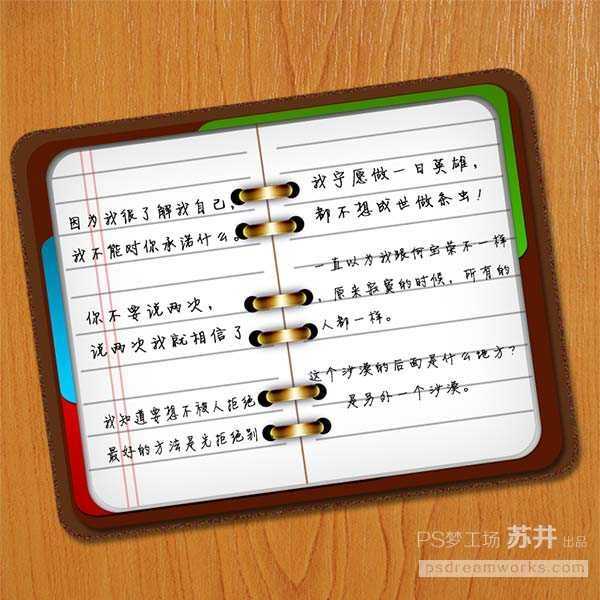 因为我很了解我自己,
我不能对你承诺什么。
你不要说两次,
说两次我就相信了
我知道要想不被人拒绝
最好的方法是先拒绝别
我宁愿做一日英雄,
都不想成世做条虫!
一直以为我跟何宝荣不一样
,原来寂寞的时候,所有的
人都一样。
这个沙漠的后面是什么地方?
是另外一个沙漠。
PS梦工场 苏井 出品
psdreamworks.com